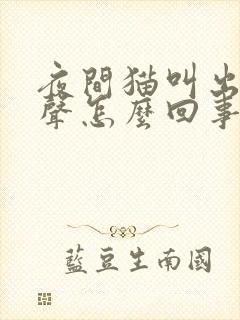 夜間猫叫出
聲怎麼回事
藍豆生南國